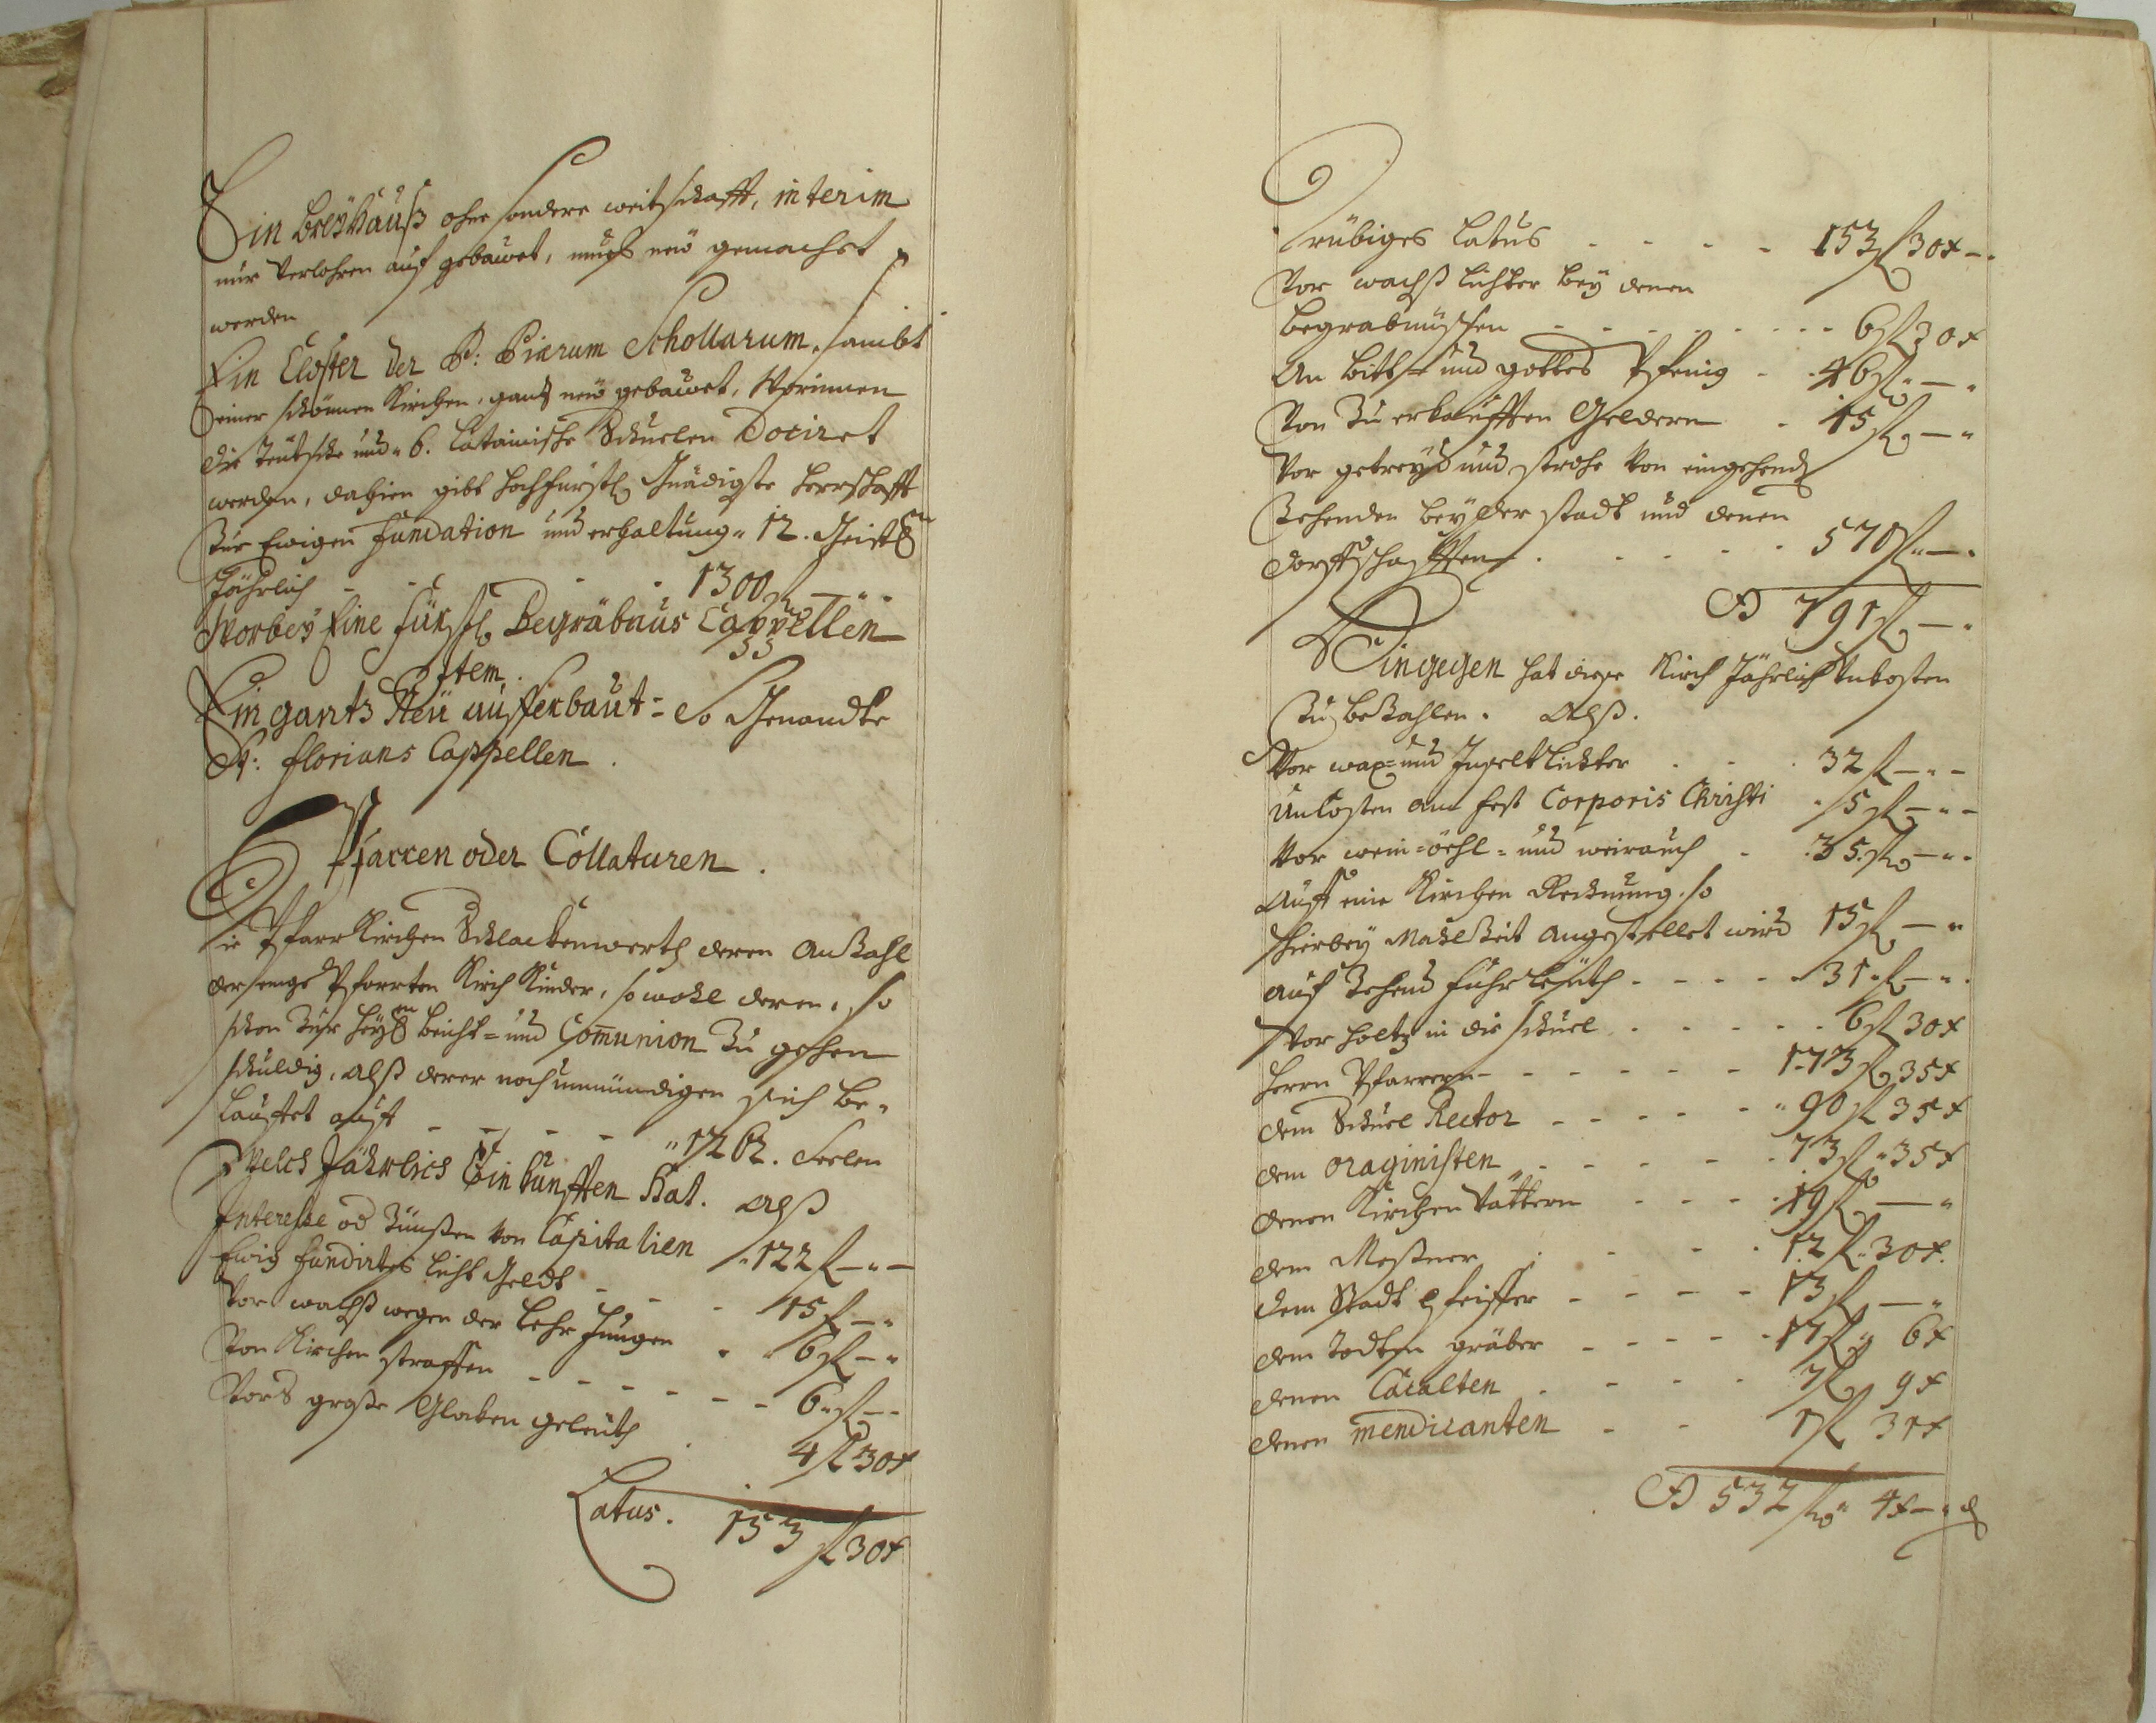 Ein Breÿhauß ohne sondere weitschafft, interim
nur verlohren auf gebauet, mueß neü gemachet
werden
Ein Closter der P: Piarum Schollarum, sambt
einer schönnen Kirchen, gantz neü gebauet, Worinnen
die Teütsche und 6. Lateinische Schuelen Dociret
werden, dahien gibt hochfürstl: Gnädigste Herrschafft
Zur Ewigen Fundation und erhaltung 12. Geistl:
Jährlich - - - 1300 fl — " -
Worbeÿ Eine Fürstl: Begräbnus Cappellen
Item.
Ein gantz Neü aufferbaut= So Genandte
St: Florians Cappellen.
Pfarren oder Collaturen.
Die Pfarr Kirchen Schlackenwerth deren Anzahl
der einge Pfarrten Kirch Kinder, sowohl deren, so
schon Zur heÿl: beicht= und Communion Zu gehen
schuldig, alß derer noch unmündigen sich be=
lauffet auff - - - - " 1262. Seelen
Welch Jährlich Einkunfften Hat. Alß
Interesse od Zünßen von Capitalien " 122 fl — " —
Ewig fundirtes Licht Geldt - - - 15 fl — "
Vor wachß wegen der Lehr Jungen " 6 fl — "
Von Kirchen straffen - - - - - - 6 " fl — -
Vors große Glocken geleüth . 4 fl 30 x
Latus. 153 fl 30 x
rübiges Latus - - - - 153 fl 30 x - "
Vor wachß lichter beÿ denen
Begräbnüssen - - - - - - - 6 fl 30 x
An bitt= und gottes Pfening - - 46 fl " — "
Von Zu erkaufften Geldern - 15 fl — "
Vor getreÿd und strohe von eingehend
Zehenden beÿ der stadt und denen
dorffschafften - - - - - 570 fl " — "
791 fl — "
Hingegen hat diese Kirch Jährlich Unkosten
Zu beZahlen. Alß.
Vor wax= und Inselt lichter . . . 32 fl — " —
Unkosten am Fest Corporis Christi " 5 fl — " —
Vor wein= öehl= und weirauch - . 35 fl — " "
Auff eine Kirchen Rechnung. so
hierbeÿ Mahlzeit angestellet wird 15 fl — "
auf Zehend Fuhr leüth - - - - " 31 " fl — " "
Vor Holtz in die schuel - - - - - 6 fl 30 x
Herrn Pfarrern - - - - - - 173 fl 35 x
dem Schuel Rector - - - - - " 90 fl 35 x
dem oraginisten - - - - - - 73 fl " 35 x
denen Kirchen Vättern - - - - 19 fl — "
dem Meßner . - - - 12 fl " 30 x.
dem Stadt Pfeiffer - - - - 13 fl — "
dem Todten gräber - - - - - 17 fl " 6 x
denen - - - - 7 fl 9 x
denen mendicanten - - 1 fl 31 x
532 fl " 4 x — " d